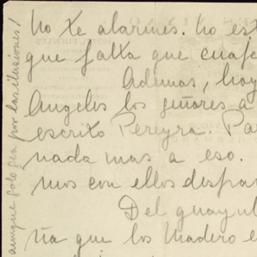 No te alarmes. No est
que falta que cuaje
Ademas, hay
Angeles los señores a
escrito Pereyra. Pa
nada mas a eso.
mos con ellos despa
Del guayul
ña que los Madero e
aunque solo sea por las ilusiones!